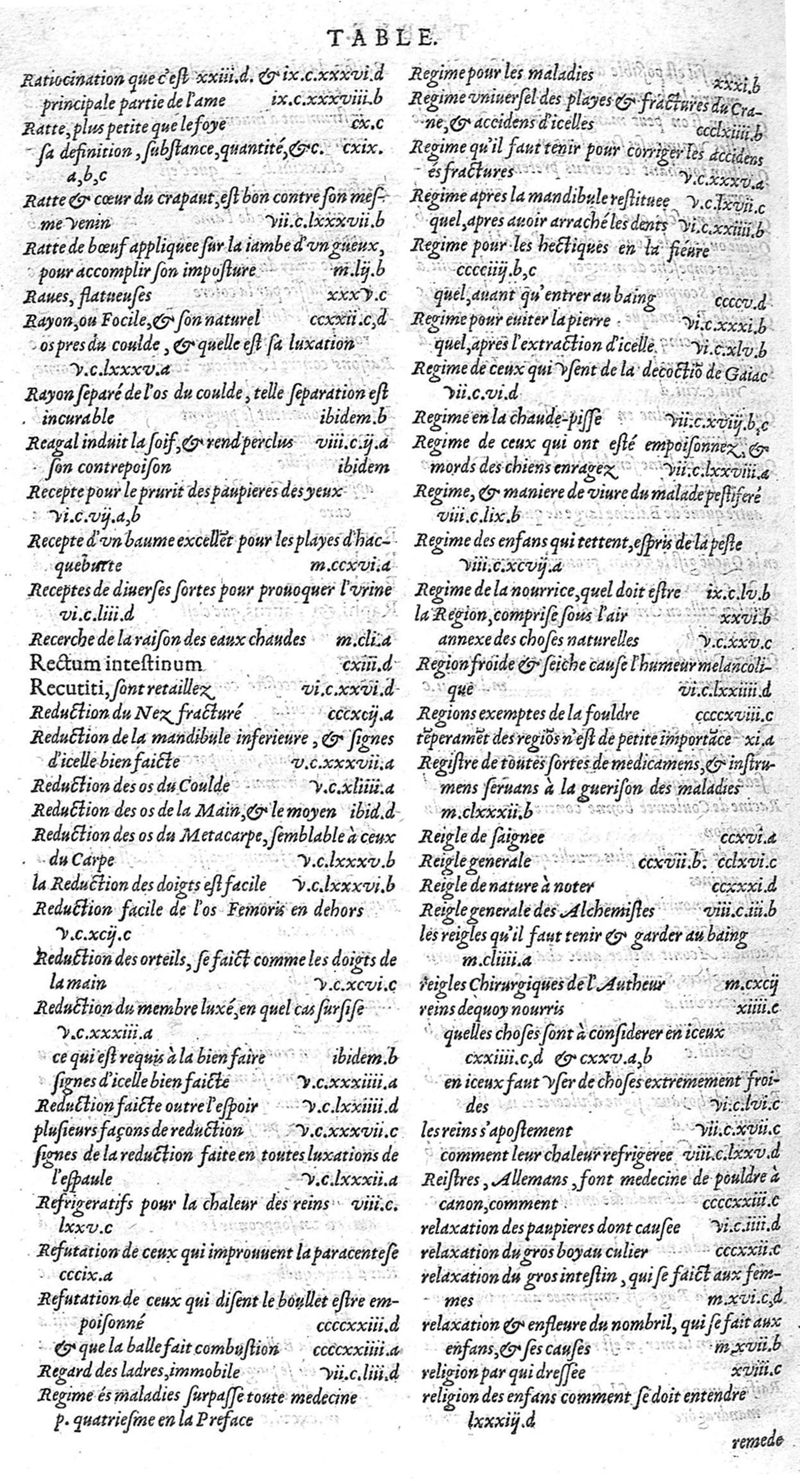 TABLE.
Ratiocination que c'eſt xxiii.d. & ix.c.xxxvi.d
principale partie de l'ame ix.c.xxxviii.b
Ratte, plus petite que le foye cx.c
ſa definition, ſubſtance, quantité, &c. cxix.
a,b,c
Ratte & cœur du crapaut, eſt bon contre ſon meſ-
me venin vii.c.lxxxvii.b
Ratte de bœuf appliquee ſur la iambe d'vn gueux,
pour accomplir ſon impoſture m.lij.b
Raues, flatueuſes xxxv.c
Rayon, ou Focile, & ſon naturel ccxxii.c,d
os pres du coulde, & quelle eſt ſa luxation
v.c.lxxxv.a
Rayon ſeparé de l'os du coulde, telle ſeparation eſt
incurable ibidem.b
Reagal induit la ſoif, & rend perclus viii.c.ij.a
ſon contrepoiſon ibidem
Recepte pour le prurit des paupieres des yeux
vi.c.vij.a,b
Recepte d'vn baume excellēt pour les playes d'hac-
quebutte m.ccxvi.a
Receptes de diuerſes ſortes pour prouoquer l'vrine
vi.c.liii.d
Recerche de la raiſon des eaux chaudes m.cli.a
Rectum inteſtinum cxiii.d
Recutiti, ſont retaillez vi.c.xxvi.d
Reduction du Nez fracturé cccxcij.a
Reduction de la mandibule inferieure, & ſignes
d'icelle bien faicte v.c.xxxvii.a
Reduction des os du Coulde v.c.xliiii.a
Reduction des os de la Main, & le moyen ibid.d
Reduction des os du Metacarpe, ſemblable à ceux
du Carpe v.c.lxxxv.b
la Reduction des doigts eſt facile v.c.lxxxvi.b
Reduction facile de l'os Femoris en dehors
v.c.xcij.c
Reduction des orteils, ſe faict comme les doigts de
la main v.c.xcvi.c
Reduction du membre luxé, en quel cas ſurſiſe
v.c.xxxiii.a
ce qui eſt requis à la bien faire ibidem.b
ſignes d'icelle bien faicte v.c.xxxiiii.a
Reduction faicte outre l'eſpoir v.c.lxxiiii.d
pluſieurs façons de reduction v.c.xxxvii.c
ſignes de la reduction faite en toutes luxations de
l'eſpaule v.c.lxxxii.a
Refrigeratifs pour la chaleur des reins viii.c.
lxxv.c
Refutation de ceux qui improuuent la paracenteſe
cccix.a
Refutation de ceux qui diſent le boullet eſtre em-
poiſonné ccccxxiii.d
& que la balle fait combuſtion ccccxxiiii.a
Regard des ladres, immobile vii.c.liii.d
Regime és maladies ſurpaſſe toute medecine
p. quatrieſme en la Preface
Regime pour les maladies xxxi.b
Regime vniuerſel des playes & fractures du Cra-
ne, & accidens d'icelles ccclxiiii.b
Regime qu'il faut tenir pour corriger les accidens
és fractures v.c.xxxv.a
Regime apres la mandibule reſtituee v.c.lxvii.c
quel, apres auoir arraché les dents vi.c.xxiiii.b
Regime pour les hectiques en la fieure
cccciiij.b,c
quel, auant qu'entrer au baing ccccv.d
Regime pour euiter la pierre vi.c.xxxi.b
quel, apres l'extraction d'icelle vi.c.xlv.b
Regime de ceux qui vſent de la decoctiō de Gaiac
vii.c.vi.d
Regime en la chaude-piſſe vii.c.xviij.b,c
Regime de ceux qui ont eſté empoiſonnez, &
mords des chiens enragez vii.c.lxxviii.a
Regime, & maniere de viure du malade peſtiferé
viii.c.lix.b
Regime des enfans qui tettent, eſpris de la peſte
viii.c.xcvij.a
Regime de la nourrice, quel doit eſtre ix.c.lv.b
la Region, compriſe ſous l'air xxvi.b
annexe des choſes naturelles v.c.xxv.c
Region froide & ſeiche cauſe l'humeur melancoli-
que vi.c.lxxiiii.d
Regions exemptes de la fouldre ccccxviii.c
tēperamēt des regiōs n'eſt de petite importāce xi.a
Regiſtre de toutes ſortes de medicamens, & inſtru-
mens ſeruans à la gueriſon des maladies
m.clxxxii.b
Reigle de ſaignee ccxvi.a
Reigle generale ccxvii.b. cclxvi.c
Reigle de nature à noter ccxxxi.d
Reigle generale des Alchemiſtes viii.c.iii.b
les reigles qu'il faut tenir & garder au baing
m.cliiii.a
reigles Chirurgiques de l'Autheur m.cxcij
reins dequoy nourris xiiii.c
quelles choſes ſont à conſiderer en iceux
cxxiiii.c,d & cxxv.a,b
en iceux faut vſer de choſes extremement froi-
des vi.c.lvi.c
les reins s'apoſtement vii.c.xvii.c
comment leur chaleur refrigeree viii.c.lxxv.d
Reiſtres, Allemans, font medecine de pouldre à
canon, comment ccccxxiii.c
relaxation des paupieres dont cauſee vi.c.iiii.d
relaxation du gros boyau culier cccxxii.c
relaxation du gros inteſtin, qui ſe faict aux fem-
mes m.xvi.c,d
relaxation & enfleure du nombril, qui ſe fait aux
enfans, & ſes cauſes m.xvii.b
religion par qui dreſſee xviii.c
religion des enfans comment ſe doit entendre
lxxxij.d
remede